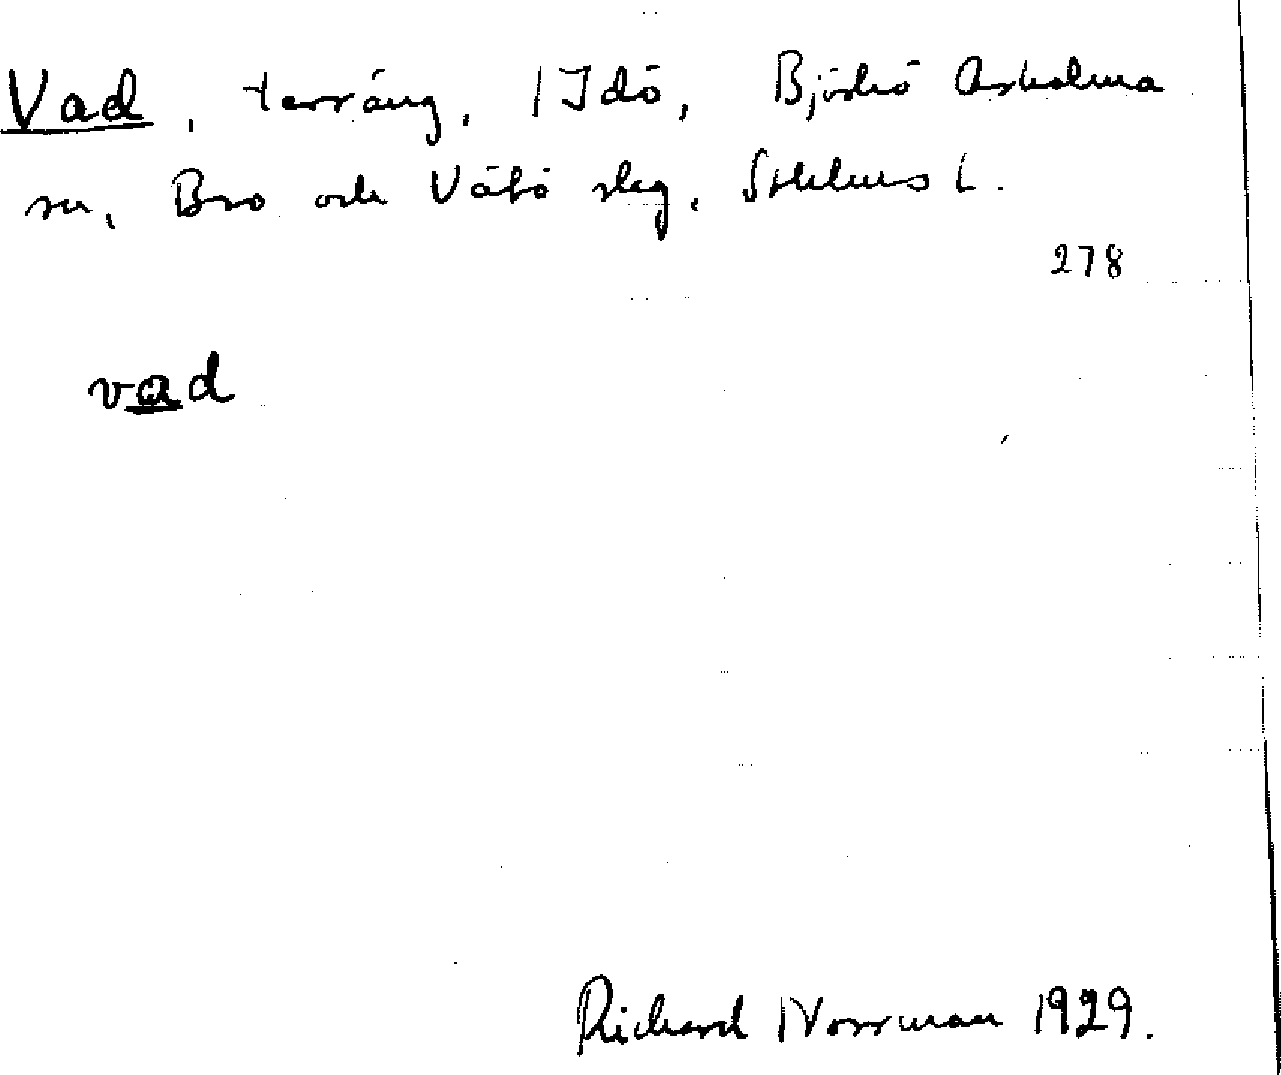 Vad, terräng, Idö, Björkö Arholma
sn, Bro och Vätö skg, Sthlms l.
278
vad
Richard Norrman 1929.